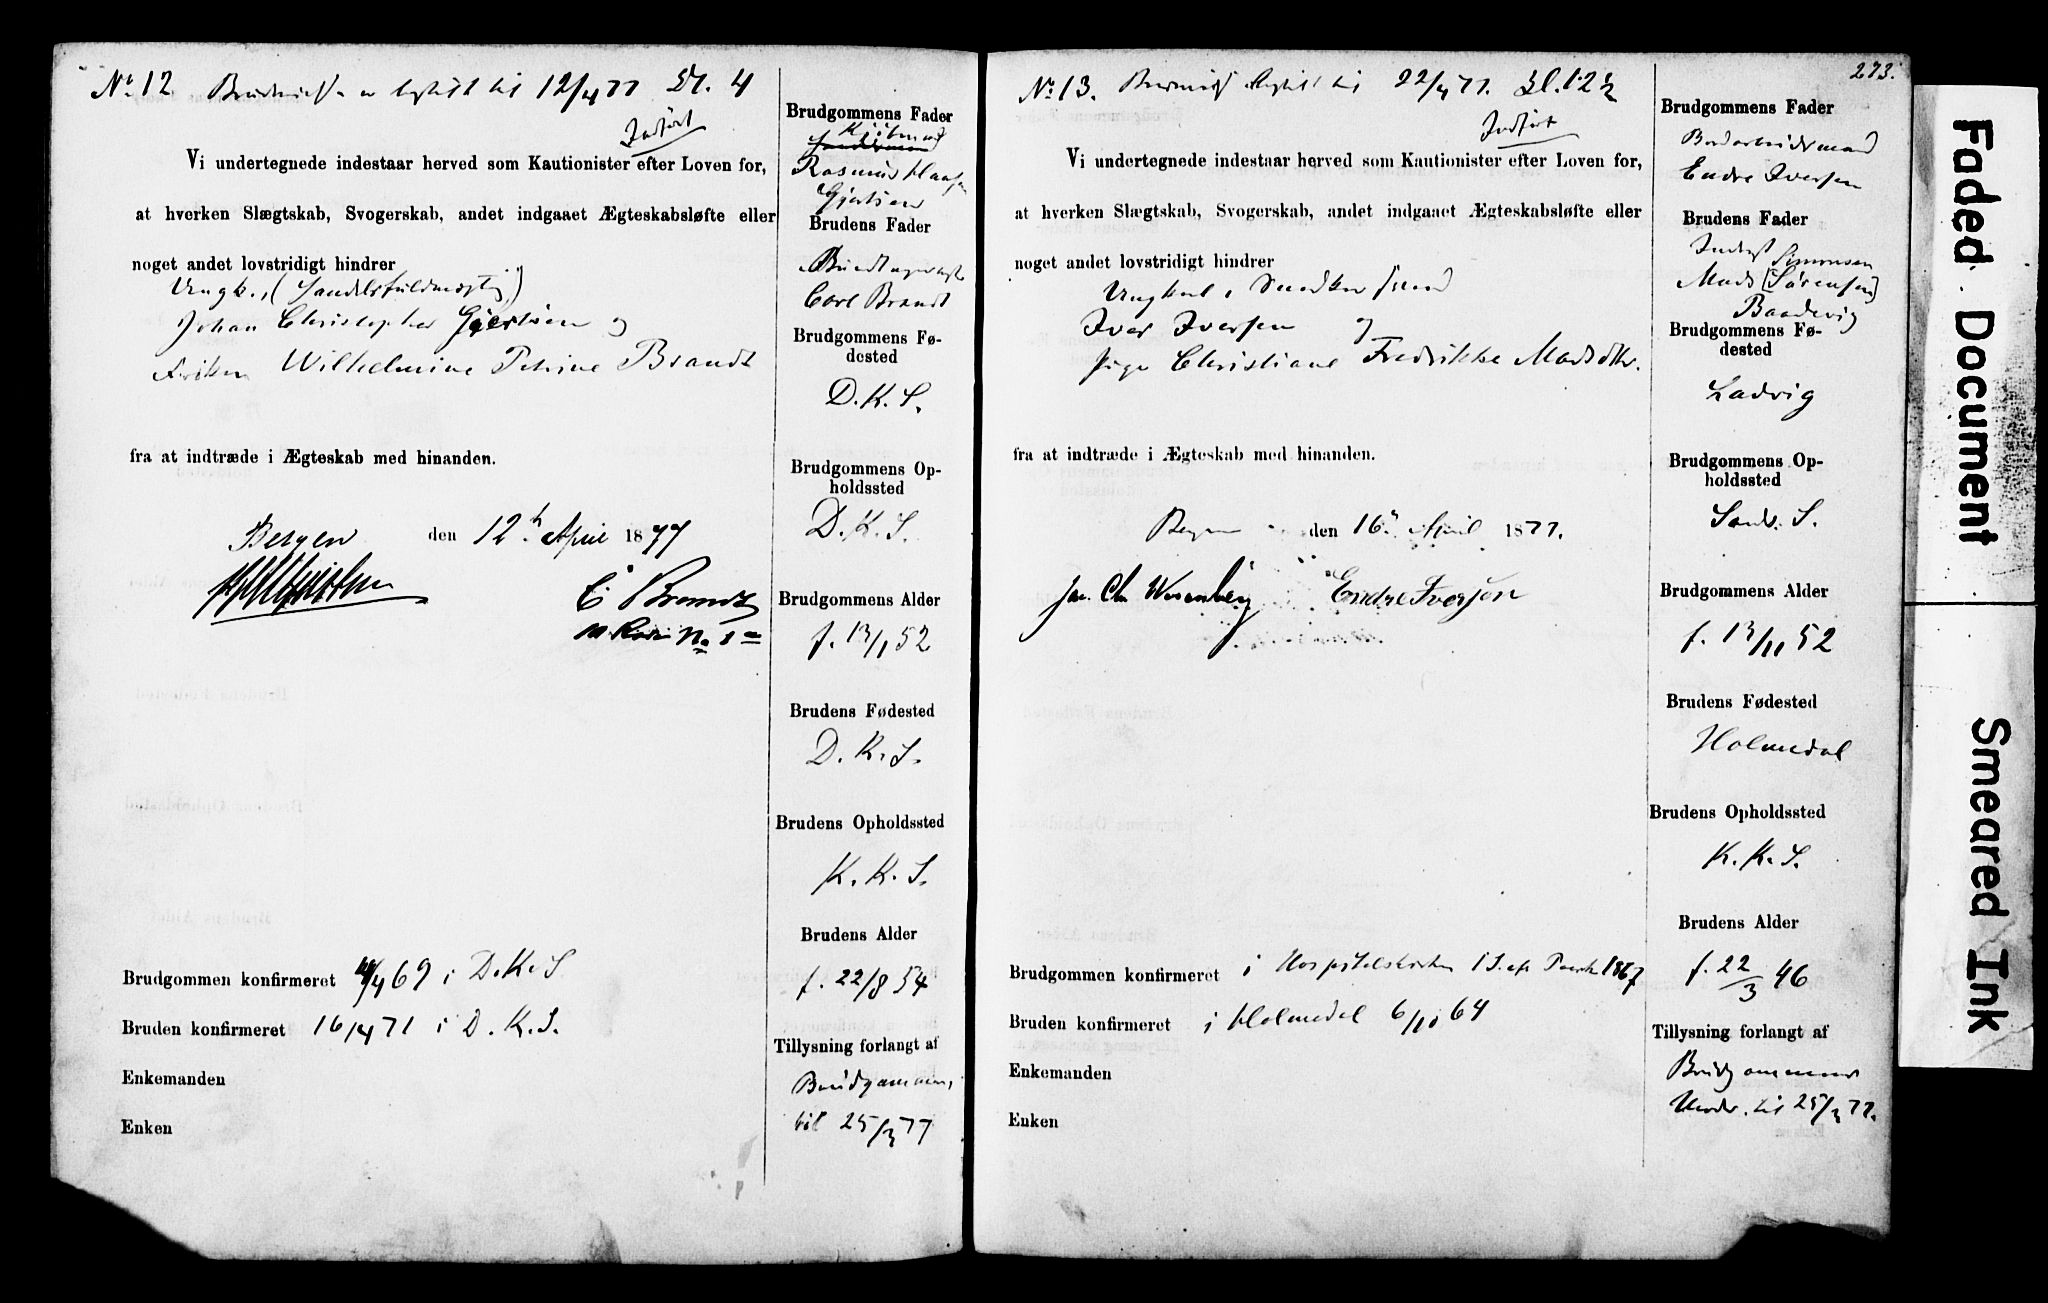 No 12 12/4 77 Kl. 4
Indført
Vi undertegnede indestaar herved som Kautionister efter Loven for,
at hverken Slægtskab, Svogerskab, andet indgaaet Ægteskabsløfte eller
noget andet lovstridigt hindrer
Ungk., (Handelsfuldmægtig)
Johan Christopher Gjertsen og
Frøken Wilhelmine Petrine Brandt
fra at indtræde i Ægteskab med hinanden.
Bergen den 12te April 1877
C Brandt
No
Brudgommen konfirmeret /4 69 i D.K.S
Bruden konfirmeret 16/4 71 i D.K.S.
Enkemanden
Enken
Brudgommens Fader
Kjøbmand
Rasmus
Gjertsen
Brudens Fader
Buntmager
Carl Brandt
Brudgommens Fø-
dested
D.K.S.
Brudgommens Op-
holdssted
D.K.S.
Brudgommens Alder
f. 13/1 52
Brudens Fødested
D.K.S.
Brudens Opholdssted
K.K.S.
Brudens Alder
f. 22/8 54
Tillysning forlangt af
Brudgommen,
til 25/3 77
273.
No 13. 22/4 77. Kl. 12½
Indført
Vi undertegnede indestaar herved som Kautionister efter Loven for,
at hverken Slægtskab, Svogerskab, andet indgaaet Ægteskabsløfte eller
noget andet lovstridigt hindrer
Ungkarl, Snedkersvend
Iver Iversen og
Pige Christiane Fredrikke Madsdtr.
fra at indtræde i Ægteskab med hinanden.
Bergen den 16de April 1877.
Endre Iversen
Brudgommen konfirmeret i Hospitalskirken 1 S. eft Paaske 1867
Bruden konfirmeret i Holmedal 6/11 64
Enkemanden
Enken
Brudgommens Fader
Endre Iversen
Brudens Fader
Inderst Simonsen
Mads [Sørensen]
Baadevig
Brudgommens Fø-
dested
Ladvig
Brudgommens Op-
holdssted
Sandv. S.
Brudgommens Alder
f. 13/11 52
Brudens Fødested
Holmedal
Brudens Opholdssted
K.K.S.
Brudens Alder
f. 22/3 46
Tillysning forlangt af
Brudgommens
Moder. til 25/3 77.
Faded Document
Smeared Ink